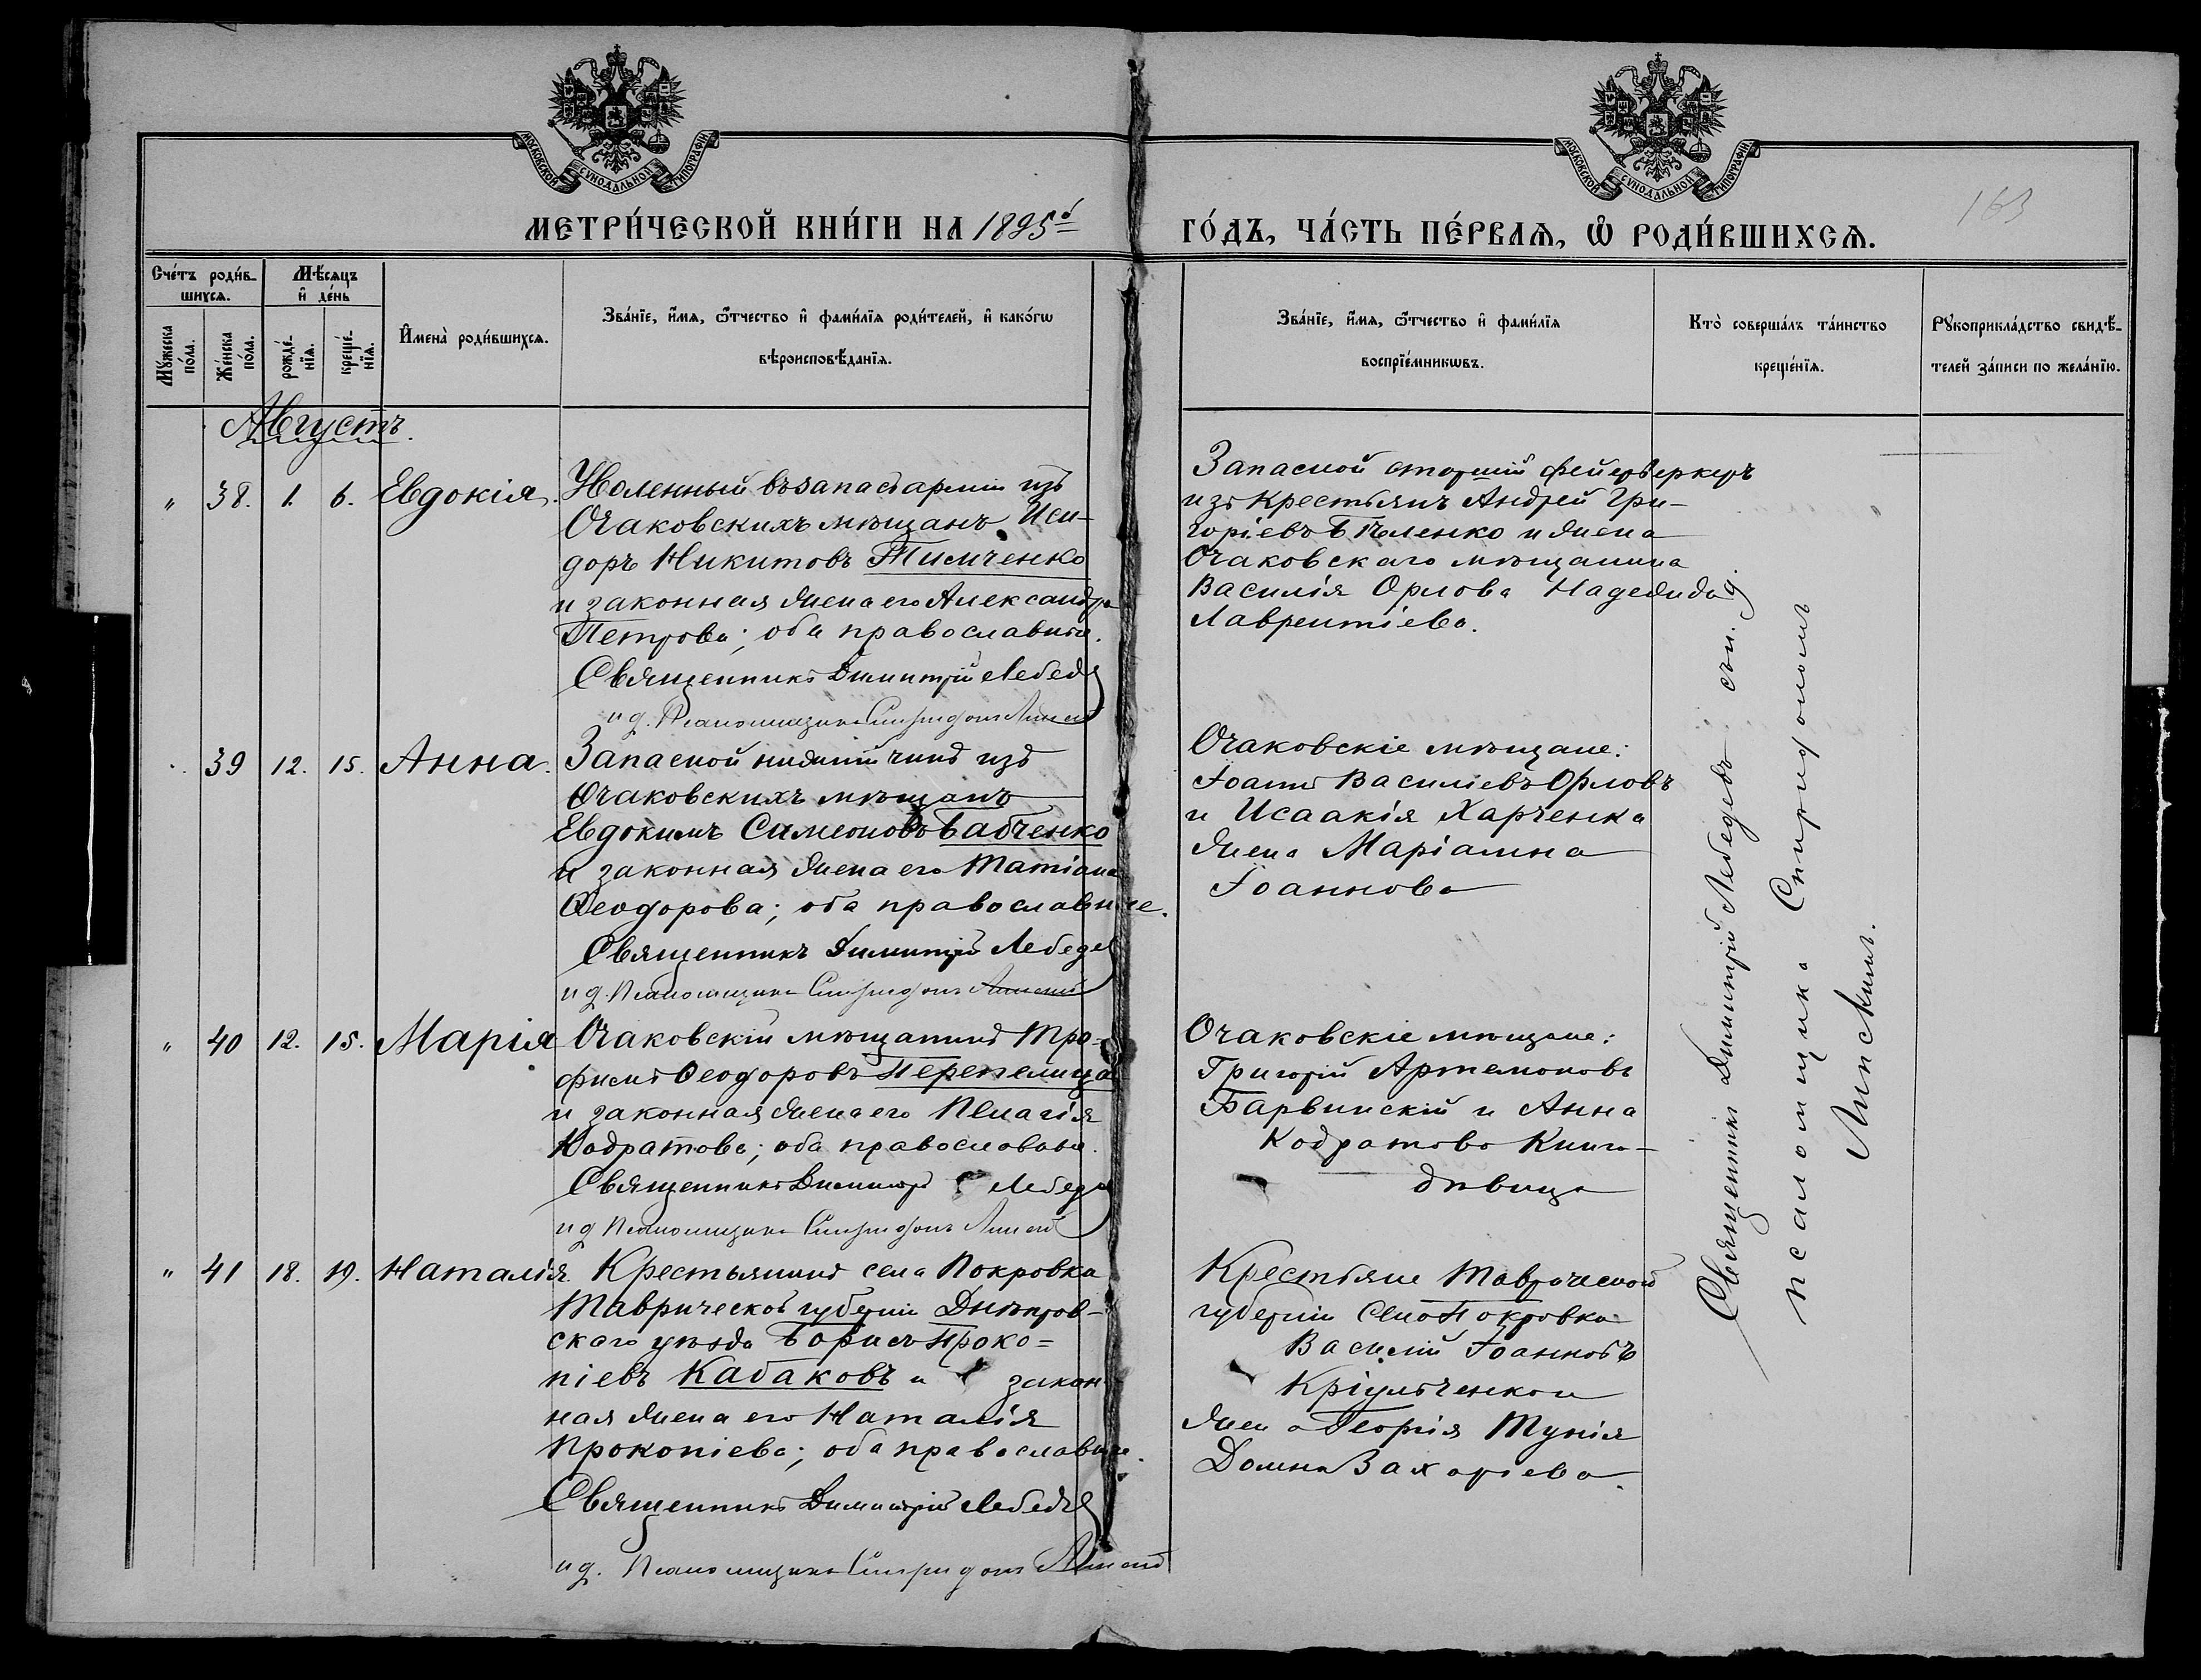 МОСКОВСКОЙ СѴНОДАЛЬНОЙ ТИПОГРАФІИ
МОСКОВСКОЙ СѴНОДАЛЬНОЙ ТИПОГРАФІИ
163
МЕТРИ́ЧЕСКОЙ КНИ́ГИ НА 1895й
ГО́ДЪ, ЧА́СТЬ ПЕ́РВАѦ, Ѿ РОДИ́ВШИХСѦ.
Сче́тъ роди́в-
шихсѧ.
Мѣ́сѧцъ
и҆ де́нь
Мꙋ́жеска
по́ла.
Же́нска
по́ла.
рожде́-
нїѧ.
креще́-
нїѧ.
И҆мена̀ роди́вшихсѧ.
Зва́нїе, и҆́мѧ, ѻ҆́тчество и҆ фами́лїѧ роди́телей, и҆ како́гѡ
вѣроисповѣ́данїѧ.
Зва́нїе, и҆́мѧ, ѻ҆́тчество и҆ фами́лїѧ
воспрїе́мникѡвъ.
Кто̀ соверша́лъ та́инство
креще́нїѧ.
Рꙋкоприкла́дство свидѣ́-
телей за́писи по жела́нїю.
Августъ.
" 38. 1. 6. Евдокія.
Уволенный въ запасъ арміи изъ
Очаковскихъ мѣщанъ Иси-
доръ Никитовъ Тимченко
и законная жена его Александра
Петрова; оба православные.
Священникъ Димитрій Лебедев
и д. Псаломщика Спиридонъ Липскій
Запасной старшій фейерверкеръ
изъ крестьянъ Андрей Гри-
горіевъ Бѣленко и жена
Очаковскаго мѣщанина
Василія Орлова Надежда
Лаврентіева.
" 39 12. 15. Анна.
Запасной нижній чинъ изъ
Очаковскихъ мѣщанъ
Евдокимъ Симеоновъ Бабченко
и законная жена его Татіана
Ѳеодорова; оба православные.
Священникъ Димитрій Лебедев
и д. Псаломщика Спиридонъ Липскій
Очаковскіе мѣщане:
Іоаннъ Василіевъ Орловъ
и Исаакія Харченка
жена Маріамна
Іоаннова
" 40 12. 15. Марія
Очаковскій мѣщанинъ Тро-
фимъ Ѳеодоровъ Перепелица
и законная жена его Пелагія
Кодратова; оба православные.
Священникъ Димитрій Лебедев
и д Псаломщика Спиридонъ Липскій
Очаковскіе мѣщане:
Григорій Артемоновъ
Барвинскій и Анна
Кодратова
дѣвица
" 41 18. 19. Наталія.
Крестьянинъ села Покровка
Таврической губерніи Днѣпров-
скаго уѣзда Борисъ Проко=
піевъ Кабаковъ и закон-
ная жена его Наталія
Прокопіева; оба православные.
Священникъ Димитрій Лебедев
и д. Псаломщика Спиридонъ Липскій
Крестьяне Таврической
губерніи села Покровка
Василій Іоанновъ
и
жена Георгія
Домна Захаріева.
Священникъ Димитрій Лебедевъ съ и. д.
псаломщика Спиридономъ
Липскимъ.